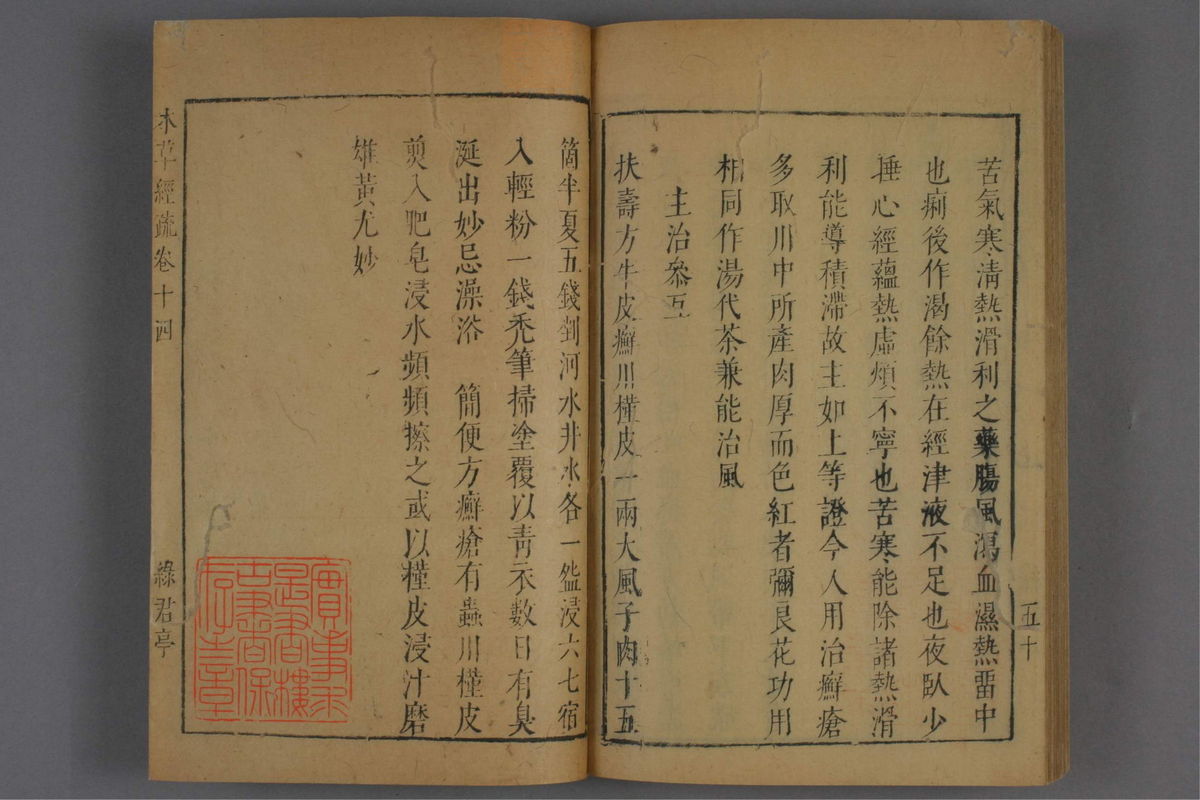 苦氣寒清熱滑利之藥腸風瀉血濕熱畱中
也痢後作渴餘熱在經津液不足也夜臥少
睡心經蘊熱虛煩不寧也苦寒能除諸熱滑
利能導積滯故主如上等證今人用治癬瘡
多取川中所產肉厚而色紅者彌良花功用
相同作湯代茶兼能治風
主治叅互
扶壽方牛皮癬川槿皮一兩大風子肉十五
五十
箇半夏五錢剉河水井水各一盌浸六七宿
入輕粉一錢禿筆掃塗覆以青衣數日有臭
涎出妙忌澡浴 簡便方癬瘡有蟲川槿皮
煎入肥皂浸水頻頻擦之或以槿皮浸汁磨
雄黃尤妙
本草經疏卷十四
綠君亭
實事求
是書樓